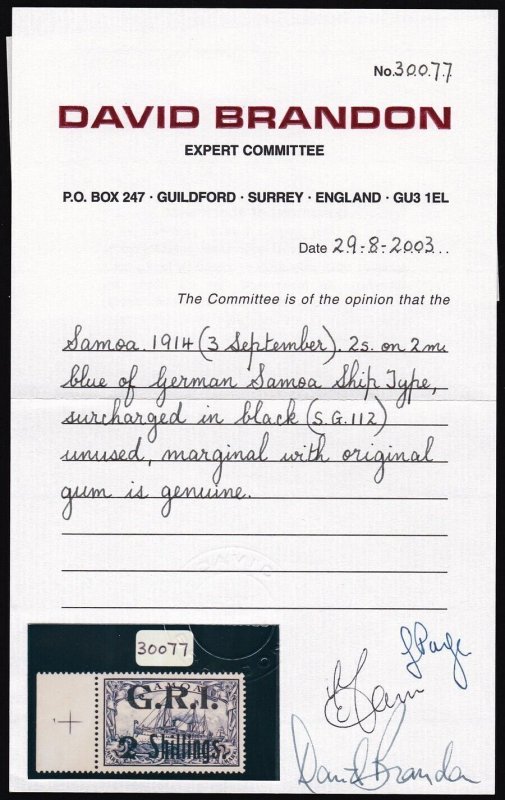 No. 30077
DAVID BRANDON
EXPERT COMMITTEE
P.O. BOX 247 · GUILDFORD · SURREY · ENGLAND · GU3 1EL
Date 29-8-2003
The Committee is of the opinion that the
Samoa. 1914 (3 September). 2s. on 2m.
blue of German Samoa Ship Type,
surcharged in black (S.G.112)
unused, marginal with original
gum is genuine.
30077
SAMOA
G.R.I.
2 Shillings.
David Brandon